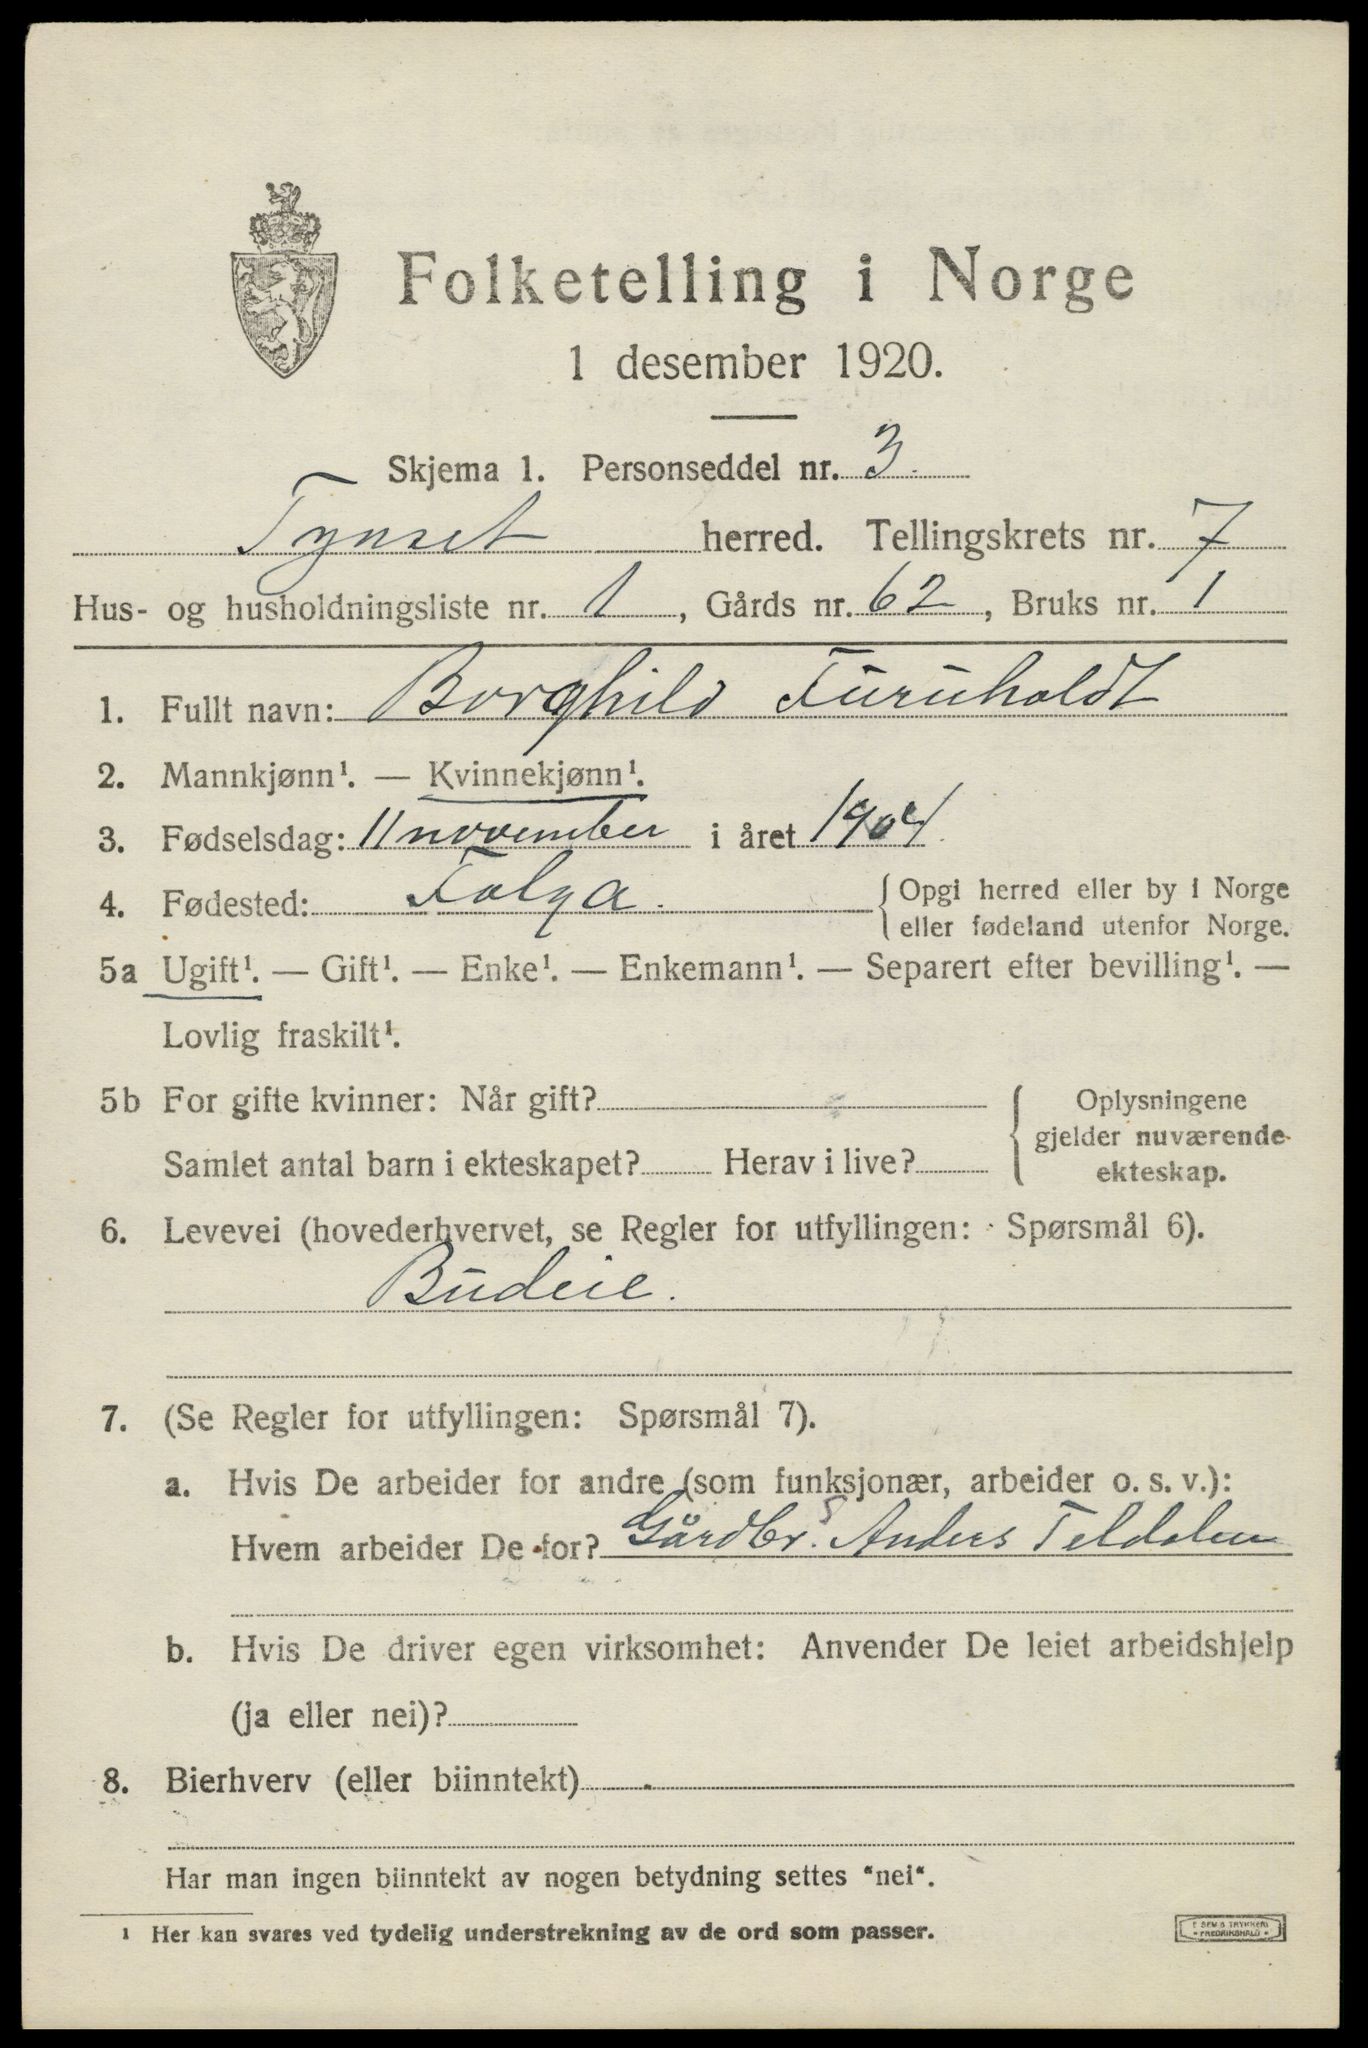 Folketelling i Norge
1 desember 1920.
Skjema 1. Personseddel nr. 3.
Tynset herred. Tellingskrets nr. 7
Hus- og husholdningsliste nr. 1, Gårds nr. 62, Bruks nr. 1
1. Fullt navn: Borghild Furuholdt
2. Mannkjønn¹. — Kvinnekjønn¹.
3. Fødselsdag: 11 november i året 1904.
4. Fødested: Tolga. { Opgi herred eller by i Norge
eller fødeland utenfor Norge.
5a Ugift¹. — Gift¹. — Enke¹. — Enkemann¹. — Separert efter bevilling¹. —
Lovlig fraskilt¹.
5b For gifte kvinner: Når gift?
Samlet antal barn i ekteskapet? Herav i live?
{ Oplysningene
gjelder nuværende
ekteskap.
6. Levevei (hovederhvervet, se Regler for utfyllingen: Spørsmål 6).
Budeie.
7. (Se Regler for utfyllingen: Spørsmål 7).
a. Hvis De arbeider for andre (som funksjonær, arbeider o. s. v.):
Hvem arbeider De for? Gårdbr. Anders Teldalen
b. Hvis De driver egen virksomhet: Anvender De leiet arbeidshjelp
(ja eller nei)?
8. Bierhverv (eller biinntekt)
Har man ingen biinntekt av nogen betydning settes "nei".
¹ Her kan svares ved tydelig understrekning av de ord som passer.
E SEM'S TRYKKERI
FREDRIKSHALD